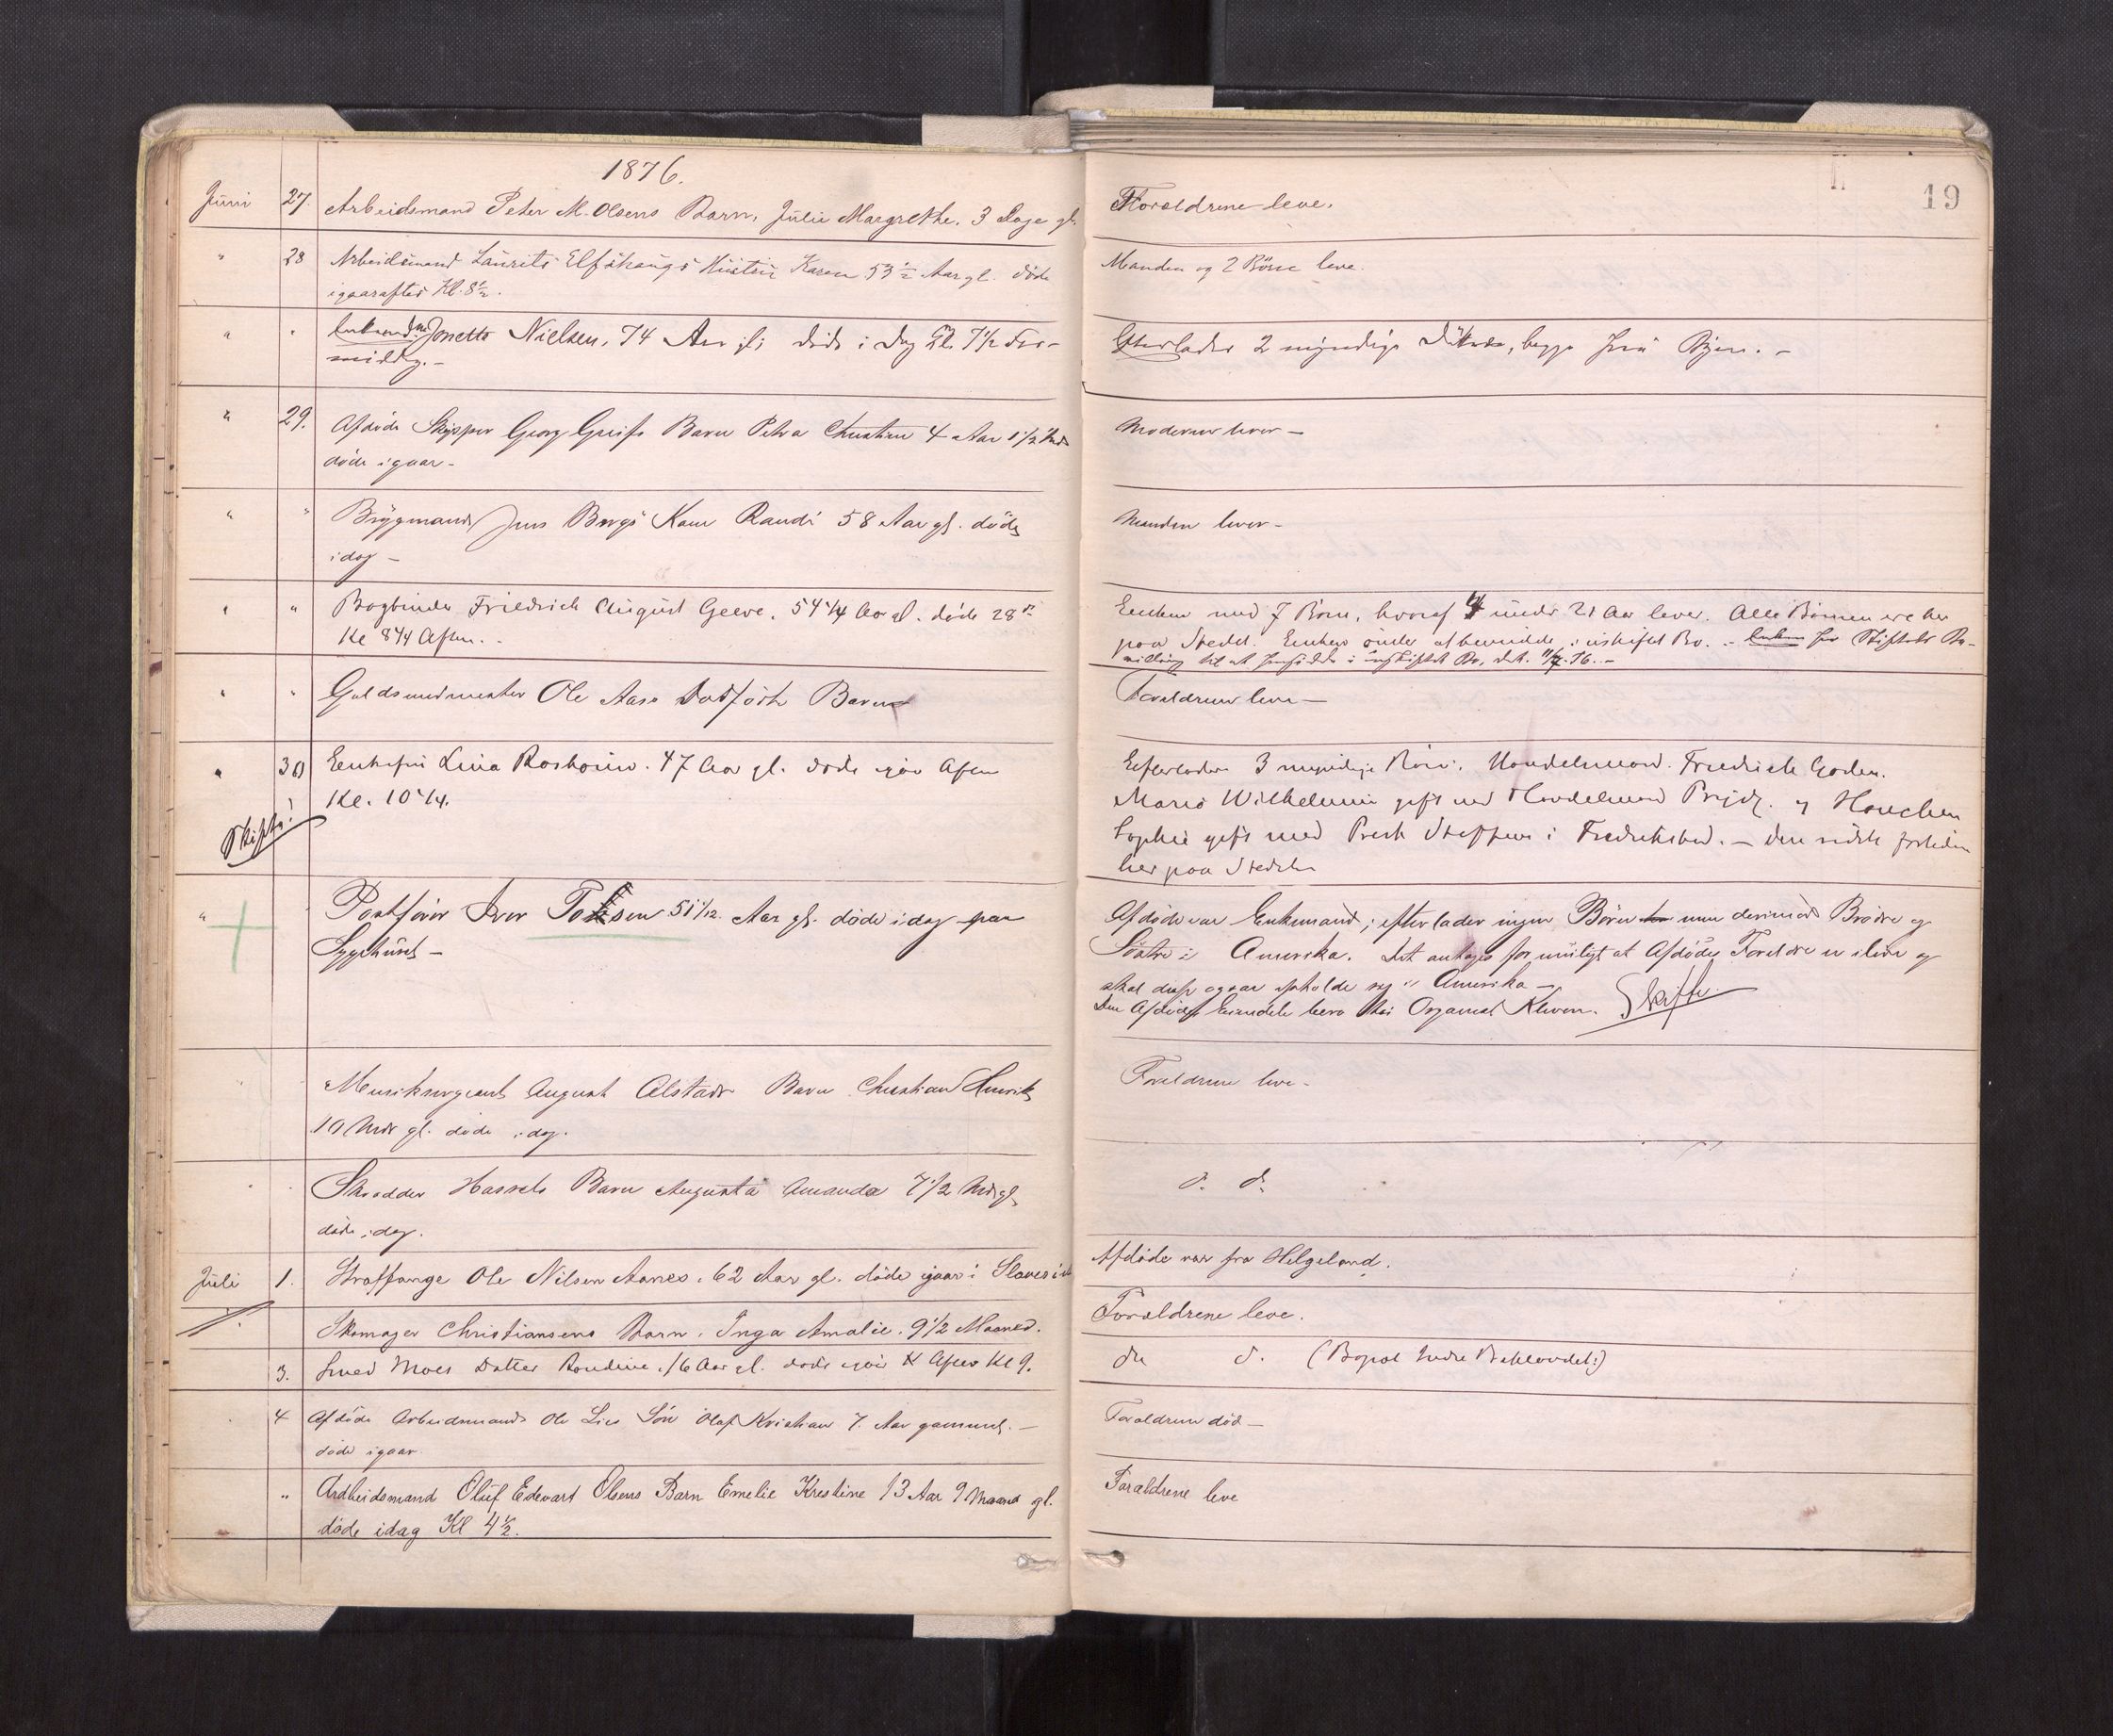 1876.
19
Juni 27. Arbeidsmand Peter M. Olsens Barn, Julie Margrethe. 3 Dage gl.
Foroeldrene leve.
" 28 Arbeidsmand Laurits Hustru Karen 53 1/2 Aar gl. døde
igaaraftes Kl. 8 1/2.
Manden og 2 Børn leve.
" " Jonette Nielsen, 74 Aar gl; døde i Dag Kl. 7 1/2 For-
middg.-
Efterlader 2 myndige Døttre, begge her i Byen. -
" 29. Afdøde Skipper Georg Greifs Barn Petra Christine 4 Aar 1 1/2 Mdr
døde igaar-
Moderen lever -
" " Bryggmand Jens Bergs Kone Randi 58 Aar gl. døde
idag -
Manden lever -
" " Bogbinder Friedrich August Geeve. 54 1/4 Aar gl. døde 28de
Kl 8 1/4 Aften.
Enken med 7 Børn, hvoraf 4 under 21 Aar lever. Alle Børnen ere her
paa Stedet. Enken ønsker at hensidde i uskiftet Bo. - Enken har Skiftets Be-
villing til at hensidde i uskiftet Bo, dat. 11/7. 76. -
" " Guldsmedmester Ole Aas Dødfødte Barn
Foraeldrene leve -
" 30 Enkefru Lina 47 Aar gl. døde igaar Aften
Kl. 10 1/4.
Skifte!
Efterlader 3 myndige Børn: Handelsmand Friedrich
Marie Wilhelmine gift med Handelsmand og Hanchen
Sophie gift med Steffens i Fredrikstad. - den sidste
her paa Stedet
" Postfører Iver 51 1/12. Aar gl. døde idag paa
Sygehuset -
Afdøde var Enkemand; efterlader ingen Børn men derimod Brødre og
Søstre i Amerika. Det antages for muligt at Afdødes Forældre er ilive og
skal disse ogsaa opholde sig i Amerika -
Den Afdødes hos Organist Skifte.
Musiksergeant August Alstads Barn Christian Henrik
10 Mdr gl. døde idag.
Forældrene leve -
Skrædder Barn Augusta Amanda 7 1/2 Mdr gl.
døde idag.
d. d.
Juli 1. Straffange Ole Nilsen Aanes. 62 Aar gl. døde igaar i Slaveriet
Afdøde var fra Helgeland.
Skomager Christiansens Barn. Inga Amalie. 9 1/2 Maaned.
Forældrene leve.
3. Smed Moes Datter 16 Aar gl. døde igaar Aften Kl 9.
do d. (Bopæl Indre Baklandet)
4 Afdøde Arbeidsmands Ole Lies Søn Olaf Kristian 7. Aar gammel. -
døde igaar.
Forældrene død -
" Ardbeidsmand Oluf Edevart Olsens Barn Emelie Krestine 13 Aar 9 Maaned gl.
døde idag Kl 4 1/2.
Forældrene leve